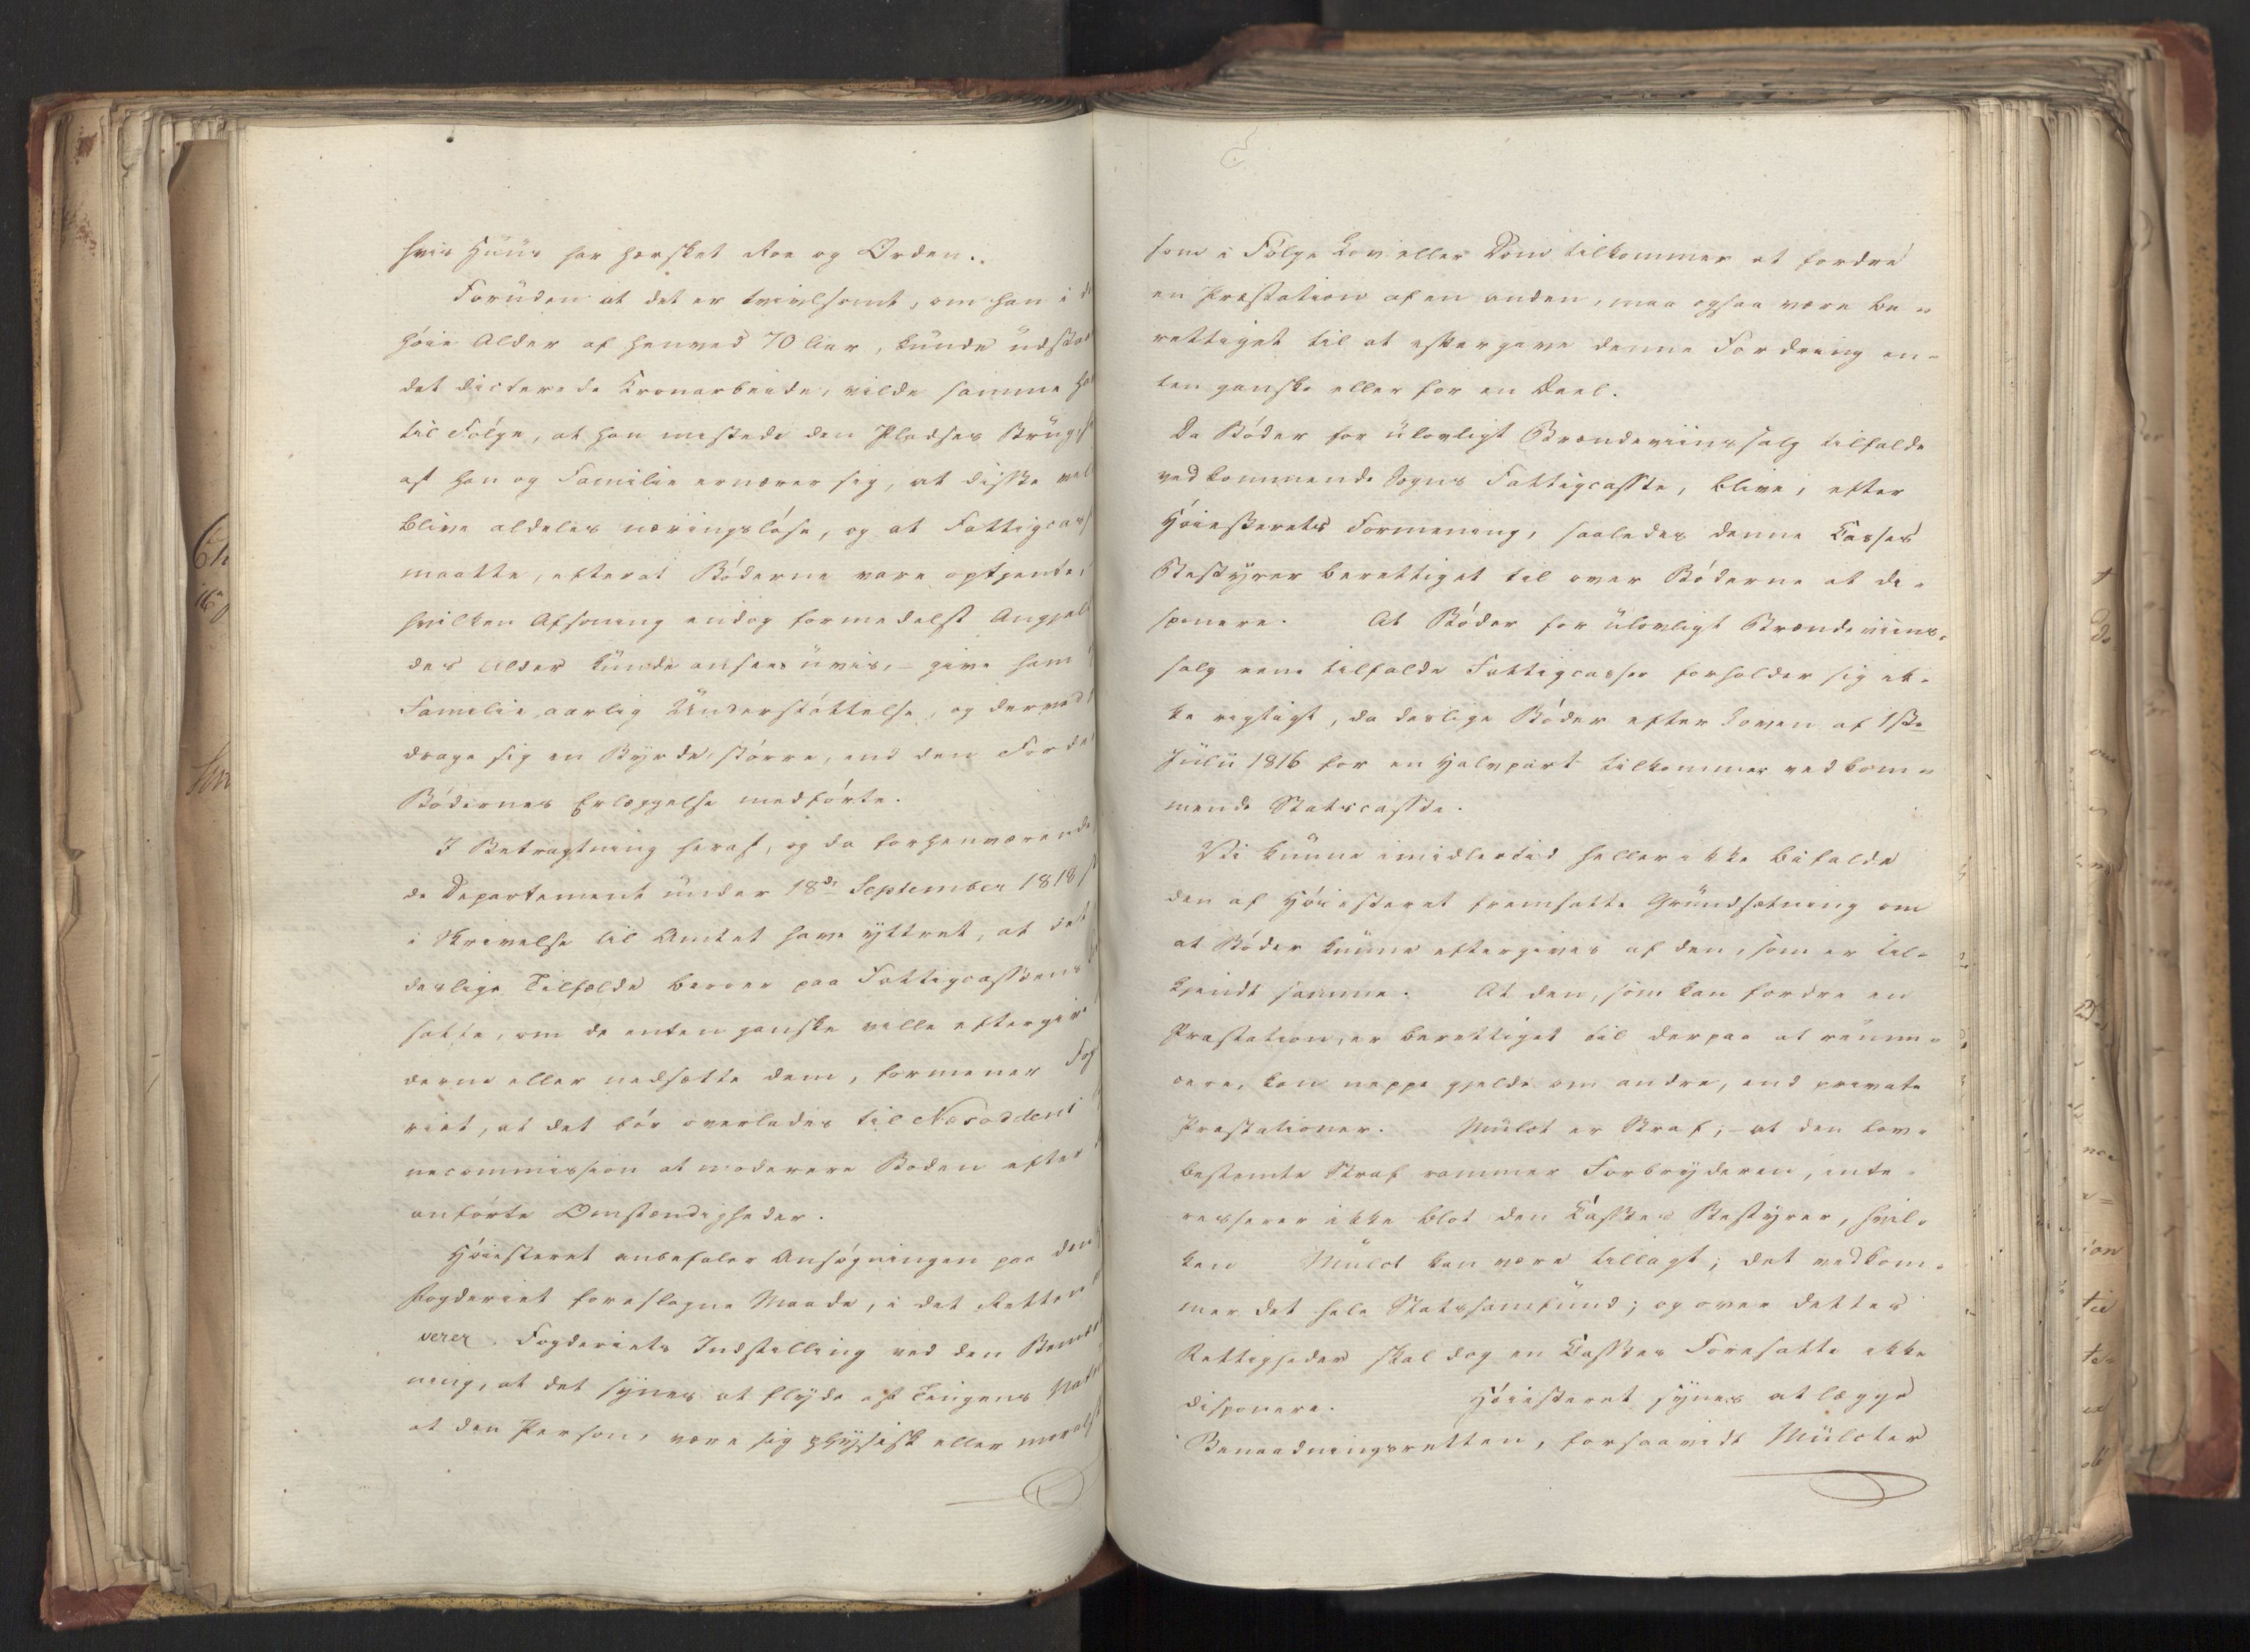 hvis Huus har hersket Roe og Orden..
Foruden at det er tvivlsomt, om han i d
høie Alder af henved 70 Aar, kunde udstaae
det dicterede Kronarbeide, vilde samme ha
til Følge, at han mistede den Pladses Brug, h
af han og Familie ernærer sig, at disse vil
blive aldeles næringsløse, og at Fattigcass
maatte, efterat Bøderne vare optjente,
hvilken Afsoning endog formedelst Angjel
des Alder kunde ansees uvis, – give ham
Familie aarlig Understøttelse, og derved
drage sig en Byrde, større, end den Forde
Bødernes Erlæggelse medførte.
I Betragtning heraf, og da forhenværende
de Departement under 18de September 1818
i Skrivelse til Amtet have yttret, at det
deslige Tilfælde beroer paa Fattigcassens
satte, om de enten ganske ville eftergive
derne eller nedsætte dem, formener Fog
riet, at det bør overlades til Næsoddens
necommission at moderere Boden efter
anførte Omstændigheder.
Høiesteret anbefaler Ansøgningen paa den
Fogderiet foreslagne Maade, i det Retten
verer Fogderiets Indstilling ved den Bemær
ning, at det synes at flyde af Tingens Natu
at den Person, være sig physisk eller moralsk
som i Følge Lov eller Dom tilkommer at fordre
en Præstation af en anden, maa ogsaa være be-
rettiget til at eftergive denne Fordring en-
ten ganske eller for en Deel.
Da Bøder for ulovligt Brændeviinssalg tilfalde
vedkommende Sogns Fattigcasse, blive, efter
Høiesterets Formening, saaledes denne Casses
Bestyrer berettiget til over Bøderne at di-
sponere. At Bøder for ulovligt Brændeviins-
salg ene tilfalde Fattigcasser forholder sig ik-
ke rigtigt, da deslige Bøder efter Loven af 1ste
Julii 1816 for en Halvpart tilkommer vedkom-
mende Statscasse.
Vi kunne imidlertid heller ikke bifalde
den af Høiesteret fremsatte Grundsætning om
at Bøder kunne eftergives af den, som er til-
kjendt samme. At den, som kan fordre en
Præstation, er berettiget til derpaa at renun-
cere, kan neppe gjelde om andre, end private
Præstationer. Mulct er Straf; – at den lov-
bestemte Straf rammer Forbryderen, inte-
resserer ikke blot den Casses Bestyrer, hvil-
ken Mulct kan være tillagt; det vedkom-
mer det hele Statssamfund; og over dettes
Rettigheder skal dog en Casses Foresatte ikke
disponere. Høiesteret synes at lægge
Benaadningsretten, forsaavidt Mulcter